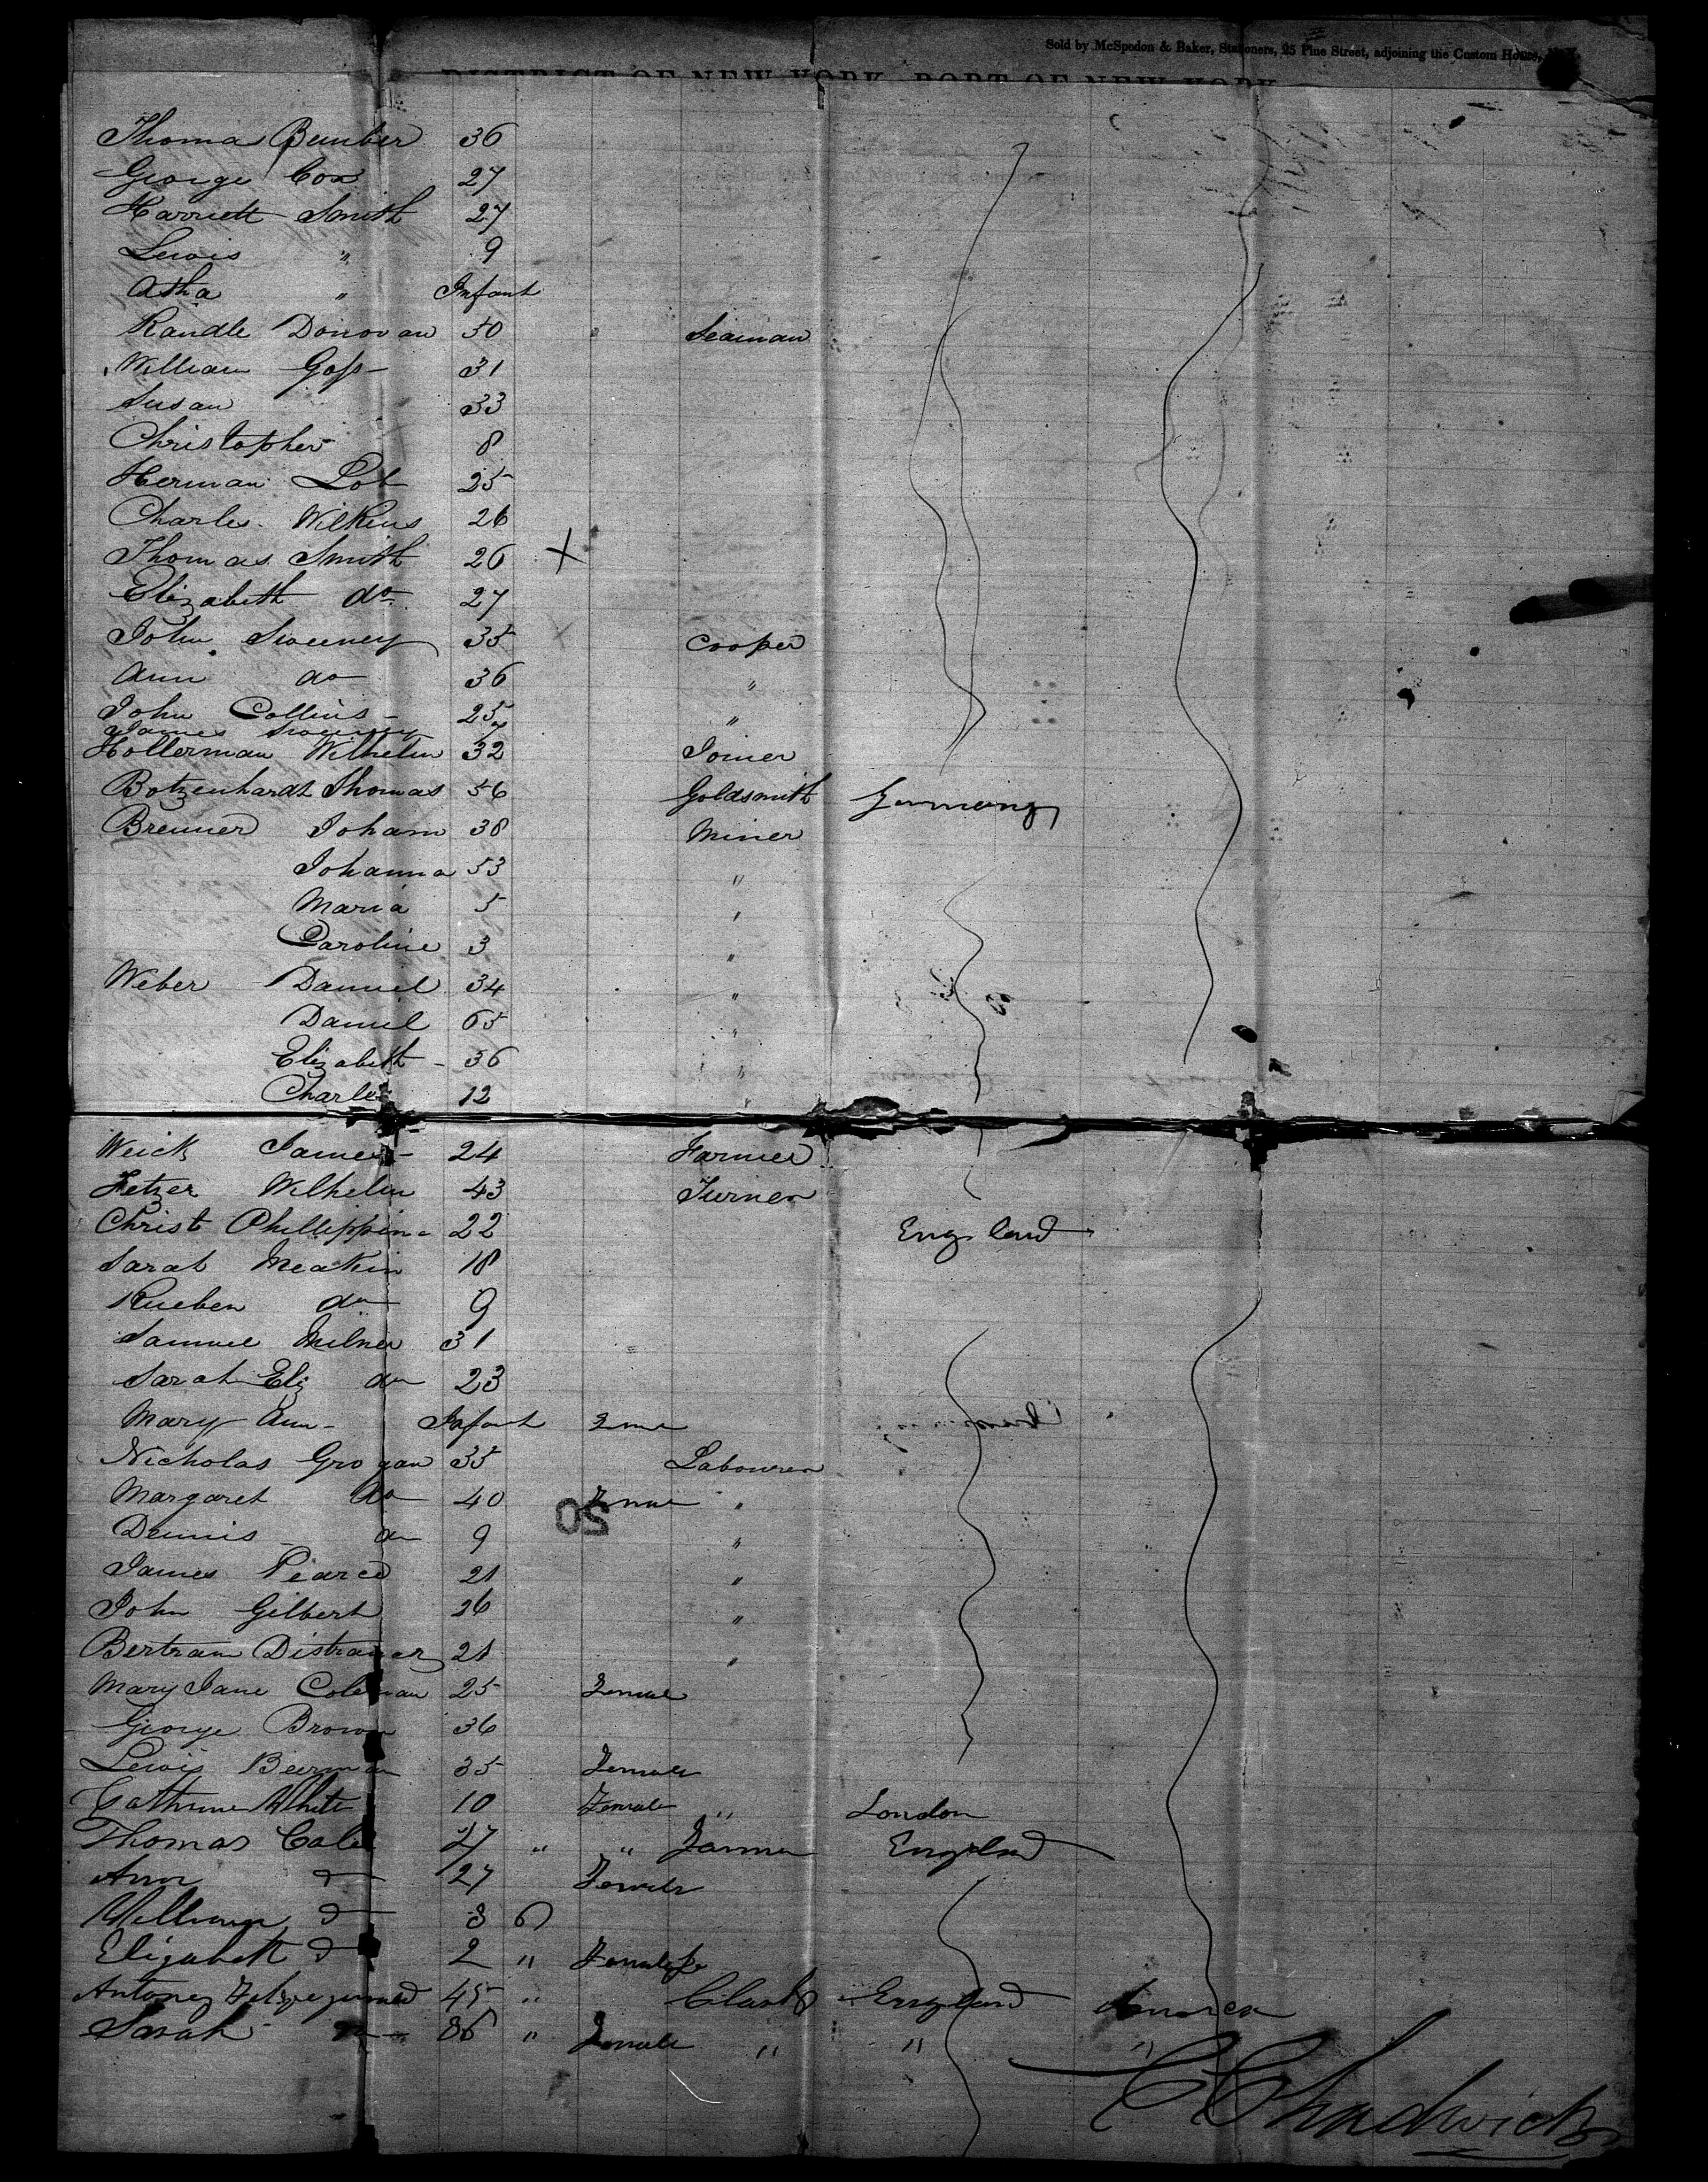 Sold by McSpedon & Baker, Stationers, 25 Pine Street, adjoining the Custom House, N.Y.
DISTRICT OF NEW YORK, PORT OF NEW YORK
Thomas Bunber 36
George Cox 27
Harriett Smith 27
Lewis " 9
" Infant
Randle Donovan 50 Seaman
William Goss 31
Susan 33
Christopher 8
Herman Lot 25
Charles Wilkins 26
Thomas Smith 26 X
Elizabeth do 27
John Sweeney 35 Cooper
Ann do 36 "
John Collins 25 "
James Sweeney 7
Hollerman Wilhelm 32 Joiner
Botzenhardt Thomas 56 Goldsmith Germany
Brenner Joham 38 Miner
Johanna 53 "
Maria 5 "
Caroline 3 "
Weber Daniel 34 "
Daniel 65 "
Elizabeth 36 "
Charles 12 "
Weick James 24 Farmer
Fetzer Wilhelm 43 Turner
Christ Phillippina 22 England
Sarah Meakin 18
Rueben do 9
Samuel Milner 31
Sarah Eliz do 23
Mary Ann Infant
Nicholas Grogan 35 Labourer
Margaret do 40 Female "
20
Dennis do 9 "
James Pearce 21 "
John Gilbert 26 "
Bertram 21 "
Mary Jane Coleman 25 Female
George Brown 36
Lewis Beerman 35 Female
Catherine White 10 Female " London
Thomas Cale 27 " " Farmer England
Ann do 27 Female
William do 3 6
Elizabeth do 2 " Female
Antoney 45 " Clark England America
Sarah do 36 " Female " " "
C Chadwick